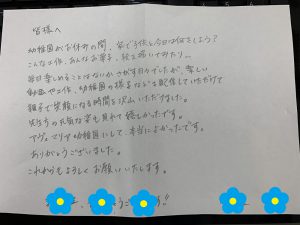 皆様へ
幼稚園がお休みの間、家で子供と今日は何をしよう?
こんな工作、あんなお菓子、絵を描いてみたり…
毎日楽しめることはないかさがす日々でしたが、楽しい
動画や工作、幼稚園の様子などを配信していただけて
親子で笑顔になる時間を沢山いただけました。
先生方の元気な姿も見れて嬉しかったです。
アヴェマリア幼稚園にして、本当によかったです。
ありがとうございました。
これからもよろしくお願いいたします。